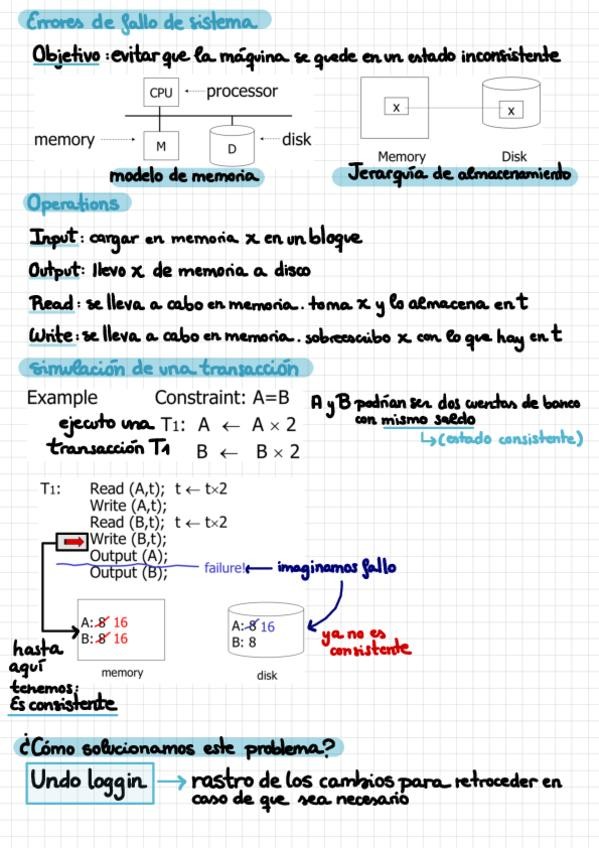 Errores de fallo de sistema
Objetivo: evitar que la máquina se quede en un estado inconsistente
CPU processor
memory M D disk
modelo de memoria
x x
Memory Disk
Jerarquía de almacenamiento
Operations
Input: cargar en memoria x en un bloque
Output: llevo x de memoria a disco
Read: se lleva a cabo en memoria. toma x y lo almacena en t
Write: se lleva a cabo en memoria. sobreescribo x con lo que hay en t
Simulación de una transacción
Example Constraint: A=B
A y B podrían ser dos cuentas de banco
con mismo saldo
↳(estado consistente)
ejecuto una T1: A ← A × 2
transacción T1 B ← B × 2
T1: Read (A,t); t ← t×2
Write (A,t);
Read (B,t); t ← t×2
Write (B,t);
Output (A);
Output (B); failure! ← imaginamos fallo
A: 8 16
B: 8 16
memory
A: 8 16
B: 8
disk
ya no es
consistente
hasta
aquí
tenemos:
Es consistente
¿Cómo solucionamos este problema?
Undo loggin → rastro de los cambios para retroceder en
caso de que sea necesario